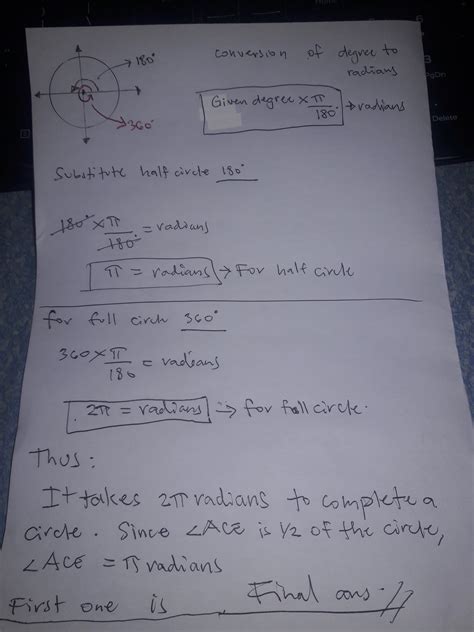 180°
360°
conversion of degree to
radians
Given degree × π/180 → radians
Substitute half circle 180°
180° × π/180° = radians
π = radians → For half circle
for full circle 360°
360 × π/180 = radians
2π = radians ⇒ for full circle.
Thus:
It takes 2π radians to complete a
circle. Since ∠ACE is 1/2 of the circle,
∠ACE = π radians
First one is Final ans.//
PgDn
Delete